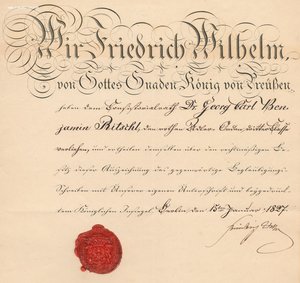 Wir Friedrich Wilhelm,
von Gottes Gnaden, König von Preußen,
haben dem Consistorialrath Dr Georg Carl Ben
jamin Ritschl, den rothen Adler-Orden dritter Klasse
verliehen, und ertheilen demselben über den rechtmäßigen Be
sitz dieser Auszeichnung das gegenwärtige Beglaubigungs
Schreiben mit Unserer eigenen Unterschrift und beygedruck
tem Königlichen Insiegel. Berlin den 15ten Januar 1827.